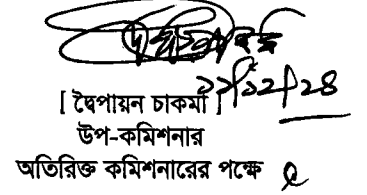 ২২/১২/২৪
[ দ্বৈপায়ন চাকমা ]
উপ-কমিশনার
অতিরিক্ত কমিশনারের পক্ষে